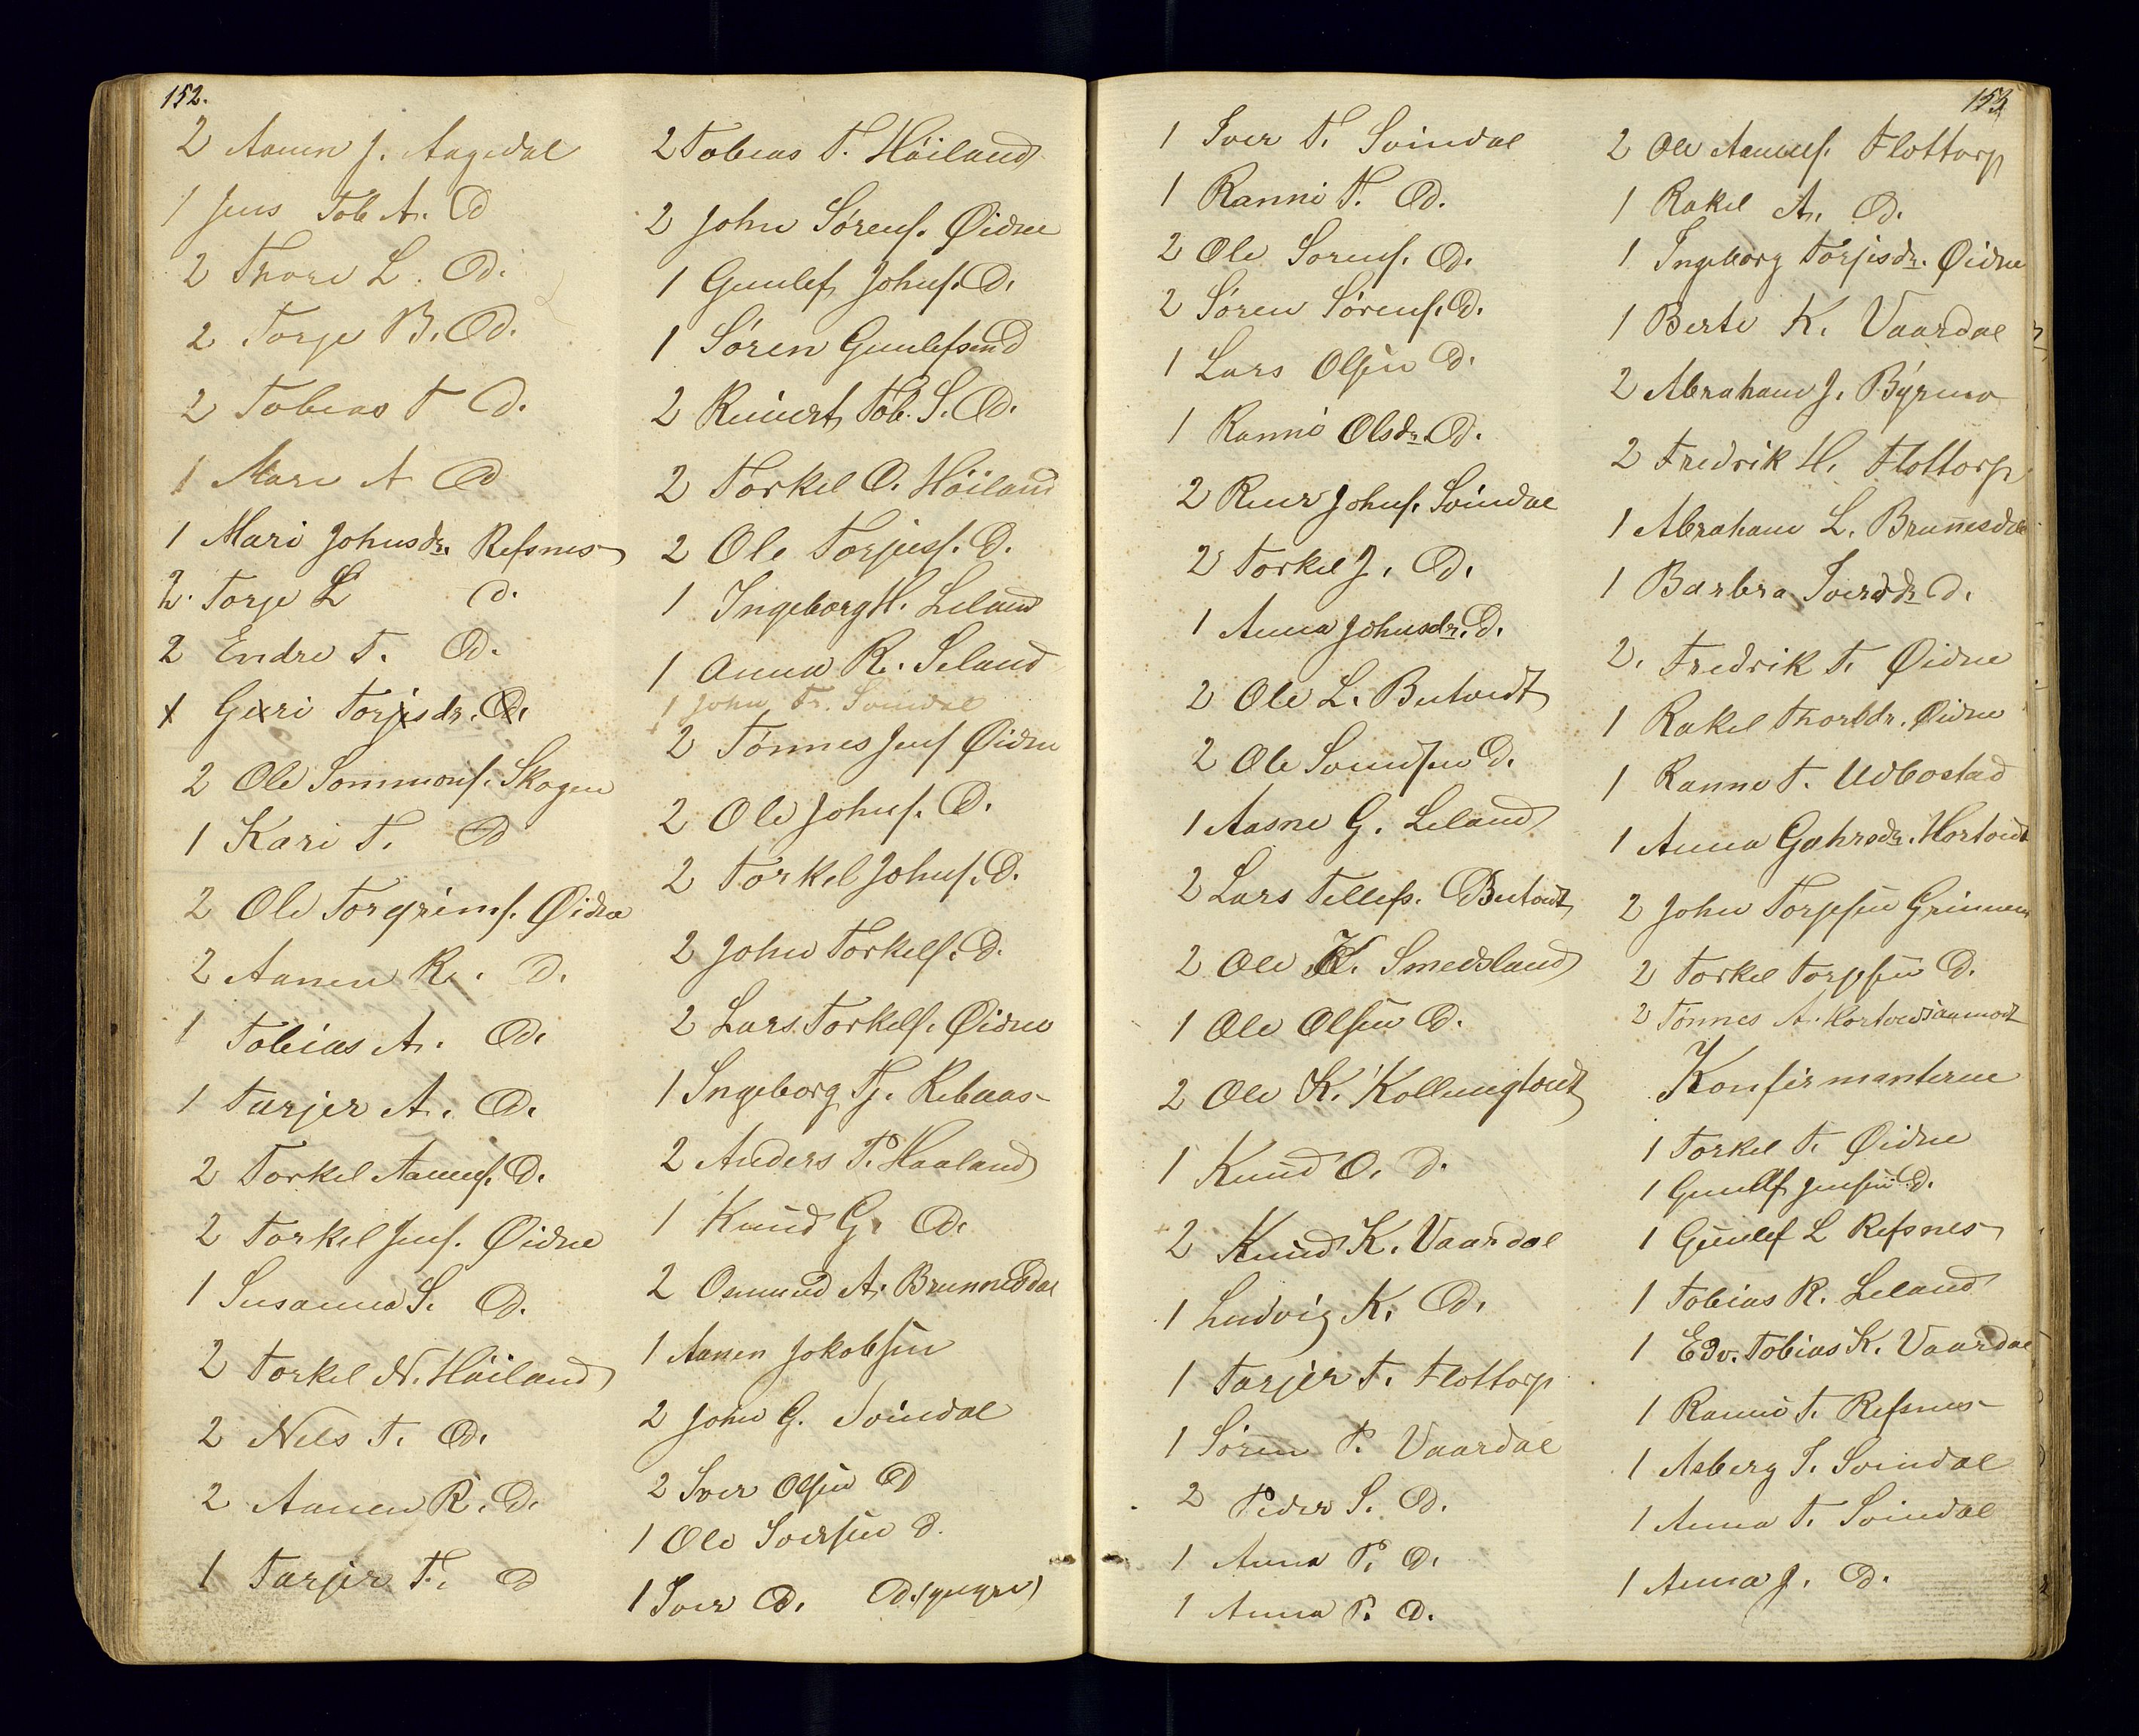 152.
2 Aanen J. Aagedal
1 Jens Tob A. D
2 Thore L. D.
2 Torje B. D.
2 Tobias T D.
1 Mari A D
1 Mari Johnsdr. Refsnes
2. Torje L D.
2 Endre T. D.
1 Guri Torjisdr. D.
2 Ole Sommons. Skogen
1 Kari T. D
2 Ole Torgrims. Øidne
2 Aanen R. D.
1 Tobias A. D.
1 Tarjer A. D.
2 Torkel Aanens. D.
2 Torkel Jens. Øidne
1 Susanna S. D.
2 Torkel N. Höiland
2 Nels T. D.
2 Aanen R. D.
1 Tarjer T. D
2 Tobias T. Höiland
2 John Sörens. Øidne
1 Gunlef Johns. D.
1 Sören Gunlefsen D
2 Reinert Tob. S. D.
2 Torkel O. Höiland
2 Ole Torjuss. D.
1 Ingeborg H. Leland
1 Anna R. Leland
1 John Tr. Svindal
2 Tönnes Jens Øidne
2 Ole Johns. D.
2 Torkel Johns. D.
2 John Torkels. D.
2 Lars Torkels. Øidne
1 Ingeborg Tj. Rebaas
2 Anders P. Haaland
1 Knud G. D.
2 Osmund A. Brunnesdal
1 Aanen Jakobsen
2 John G. Svindal
2 Iver Olsen D
1 Ole Iversen D.
1 Iver D. D. (yngre)
153
1 Iver T. Svindal
1 Ranni T. D.
2 Ole Sorens. D.
2 Sören Sörens. D.
1 Lars Olsen D.
1 Ranni Olsdr. D.
2 Reier Johns. Svindal
2 Torkel J. D.
1 Anna Johnsdr. D.
2 Ole L. Butvedt
2 Ole Svendsen D.
1 Aasne G. Leland
2 Lars Tellefs. Butvedt
2 Ole K. Smedsland
1 Ole Olsen D.
2 Ole K. Kollungtvedt
1 Knud O. D.
2 Knud K. Vaardal
1 Ludvig K. D.
1 Tarjer T. Flottorp
1 Sören P. Vaardal
2 Peder S. D.
1 Anna P. D.
1 Anna P. D.
2 Ole Aanens. Flottorp
1 Rakel A. D.
1 Ingeborg Torjisdr. Øidne
1 Berte K. Vaardal
2 Abraham J. Byrmo
2 Fredrik H. Flottorp
1 Abraham L. Brunnesdal
1 Barbra Iversdr D.
2. Fredrik T. Øidne
1 Rakel Thorsdr. Øidne
1 Ranne T. Udbostad
1 Anna Gahrsdr. Hortvedt
2 John Torjesen
2 Torkel Torjesen D.
2 Tönnes A.
Konfirmanterne
1 Torkel T. Øidne
1 Gunlef Jensen D.
1 Gunlef L Refsnes
1 Tobias R. Leland
1 Edv. Tobias K. Vaardal
1 Ranni T. Refsnes
1 Asberg T. Svindal
1 Anna T. Svindal
1 Anna J. D.